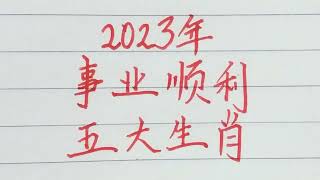 2023年
事业顺利
五大生肖